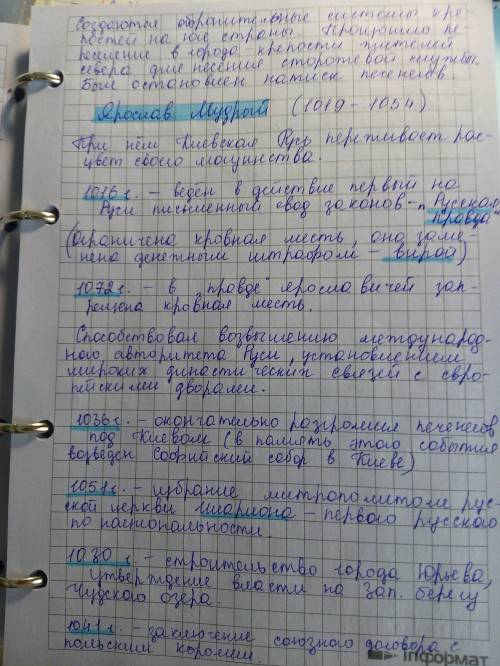 Создаются оборонительные системы кре-
постей на юге страны. Произошло пе-
реселение в города-крепости жителей
севера для несения сторожевой службы.
Был остановлен натиск печенегов.
Ярослав Мудрый (1019-1054)
При нём Киевская Русь переживает рас-
цвет своего могущества.
1016 г. – ведён в действие первый на
Руси письменный свод законов-„Русская
правда"
(ограничена кровная месть, она заме-
нена денежным штрафом – вирой)
1072 г. – в „правде" Ярославичей зап-
рещена кровная месть.
Способствовал возвышению международ-
ного авторитета Руси, установлением
широких династических связей с евро-
пейскими дворами.
1036 г. – окончательно разгромил печенегов
под Киевом (в память этого события
возведен Софийский собор в Киеве)
1051 г. – избрание митрополитом рус-
ской церкви Илариона – первого русского
по национальности.
1030 г. – строительство города Юрьева,
Утверждение власти на зап. берегу
Чудского озера.
1041 г. – заключение союзного договора с
польским королем
информат